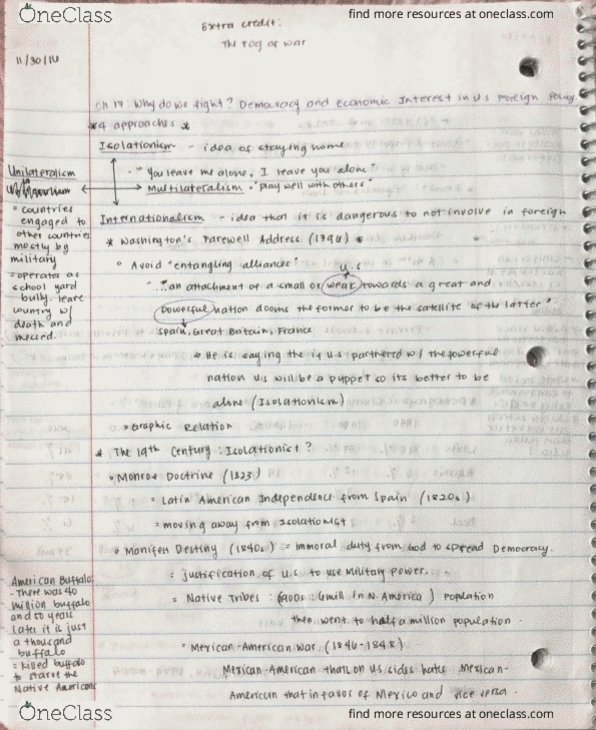 OneClass
find more resources at oneclass.com
Extra credit:
The Fog of War
11/30/16
Ch 17: Why do we fight? Democracy and Economic Interest in U.S Foreign Policy
*4 approaches *
Isolationism - idea of staying home
- "You leave me alone, I leave you alone"
Multilateralism - "play well with others"
Internationalism - idea that it is dangerous to not involve in foreign
Unilateralism
• countries
engaged to
other countries
mostly by
military
= operates as
school yard
bully. leave
country w/
death and
messed.
* Washington's Farewell Address (1796) *
• Avoid "entangling alliances"
U.S
"...an attachment of a small or weak towards a great and
powerful nation dooms the former to be the satellite of the latter"
Spain, Great Britain, France
• He is saying the if U.S partnered w/ the powerful
nation U.S will be a puppet so its better to be
alone (Isolationism)
• Graphic Relation
* The 19th Century: Isolationist?
• Monroe Doctrine (1823)
= Latin American Independence from Spain (1820s)
= moving away from Isolationist
• Manifest Destiny (1840s) = immoral duty from God to spread Democracy.
= justification of U.S to use Military power.
= Native Tribes: (1900s: 6mill in N. America) population
then went to half a million population.
= Mexican-American War (1846-1848)
Mexican-American that on US sides hates Mexican-
American that in favor of Mexico and vice versa.
American Buffalo:
- There was 40
million buffalo
and 50 years
later it is just
a thousand
buffalo
= killed buffalo
to starve the
Native Americans
OneClass
find more resources at oneclass.com